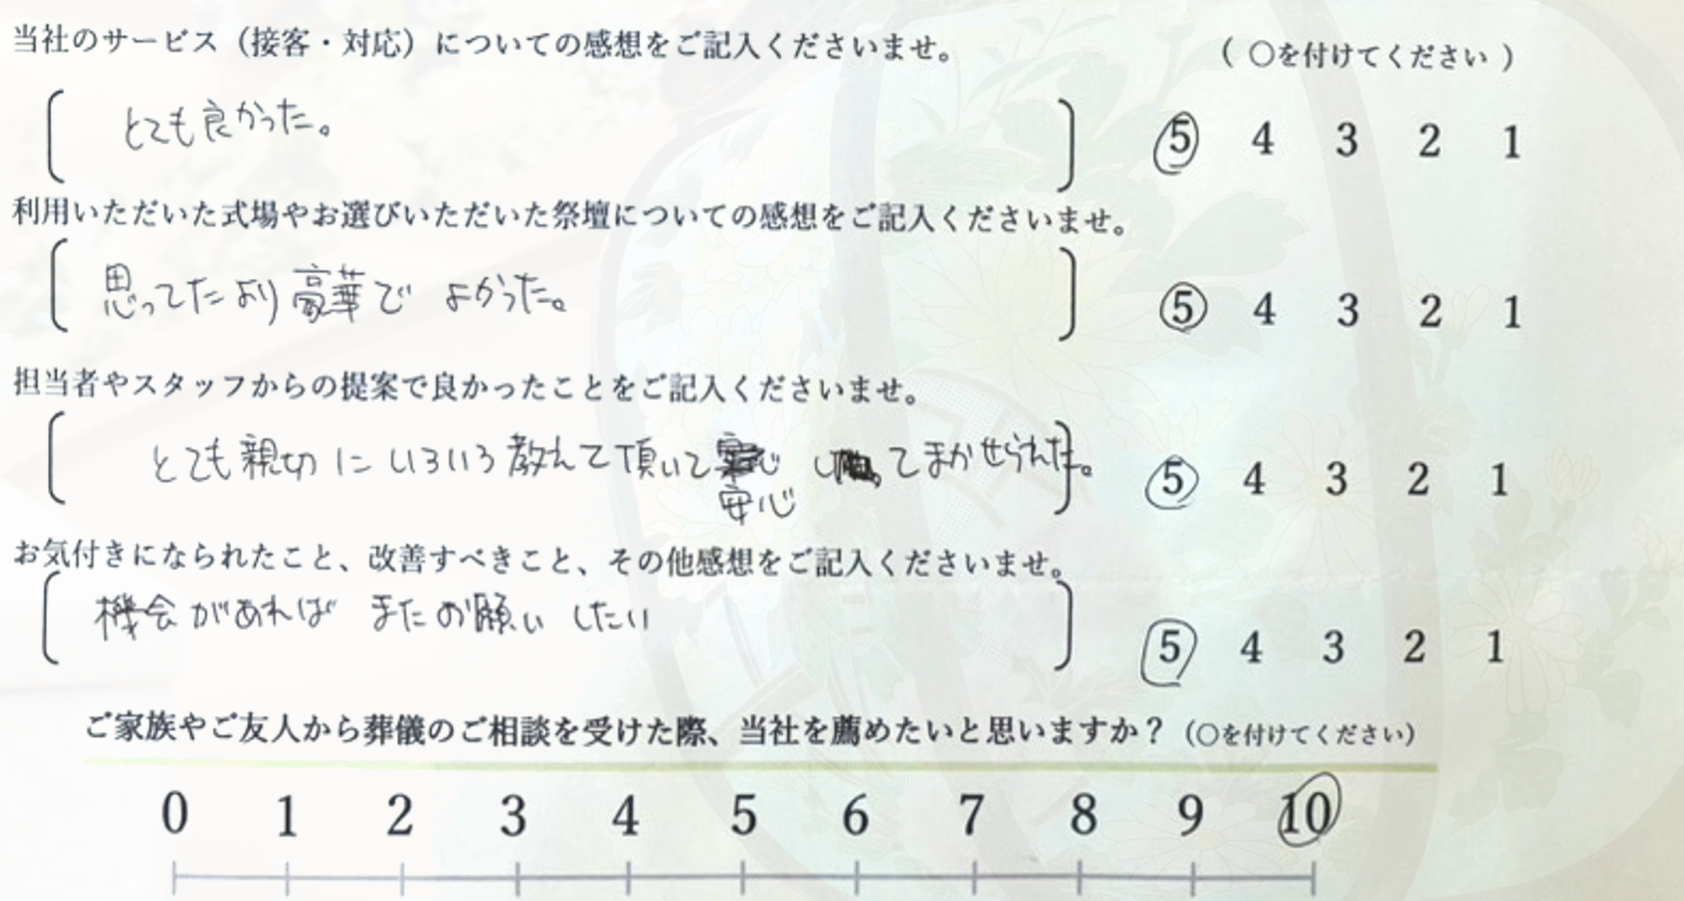 当社のサービス（接客・対応）についての感想をご記入くださいませ。 （ 〇を付けてください ）
とても良かった。 5 4 3 2 1
利用いただいた式場やお選びいただいた祭壇についての感想をご記入くださいませ。
思ってたより豪華で よかった。 5 4 3 2 1
担当者やスタッフからの提案で良かったことをご記入くださいませ。
とても親切にいろいろ教えて頂いて し てまかせられた。 5 4 3 2 1
安心
お気付きになられたこと、改善すべきこと、その他感想をご記入くださいませ。
機会があれば またお願い したい 5 4 3 2 1
ご家族やご友人から葬儀のご相談を受けた際、当社を薦めたいと思いますか？（〇を付けてください）
0 1 2 3 4 5 6 7 8 9 10